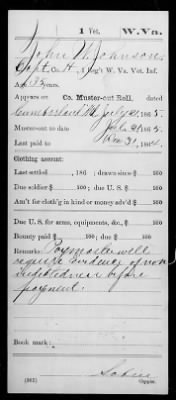 1 Vet. W.Va.
John W. Johnson
Capt., Co. H, 1 Reg't W. Va. Vet. Inf.
Age 35 years
Appears on Co. Muster-out Roll, dated
Cumberland Md July 21, 1865.
Muster-out to date July 21, 1865.
Last paid to Dec 31, 1864
Clothing account:
Last settled , 186 ; drawn since $ 100
Due soldier $ 100; due U. S. $ 100
Am't for cloth'g in kind or money adv'd $ 100
Due U. S. for arms, equipments, &c., $ 100
Bounty paid $ 100; due $ 100
Remarks: Paymaster will
require evidence of non
indebtedness before
payment.
Book mark:
(862) Copyist.